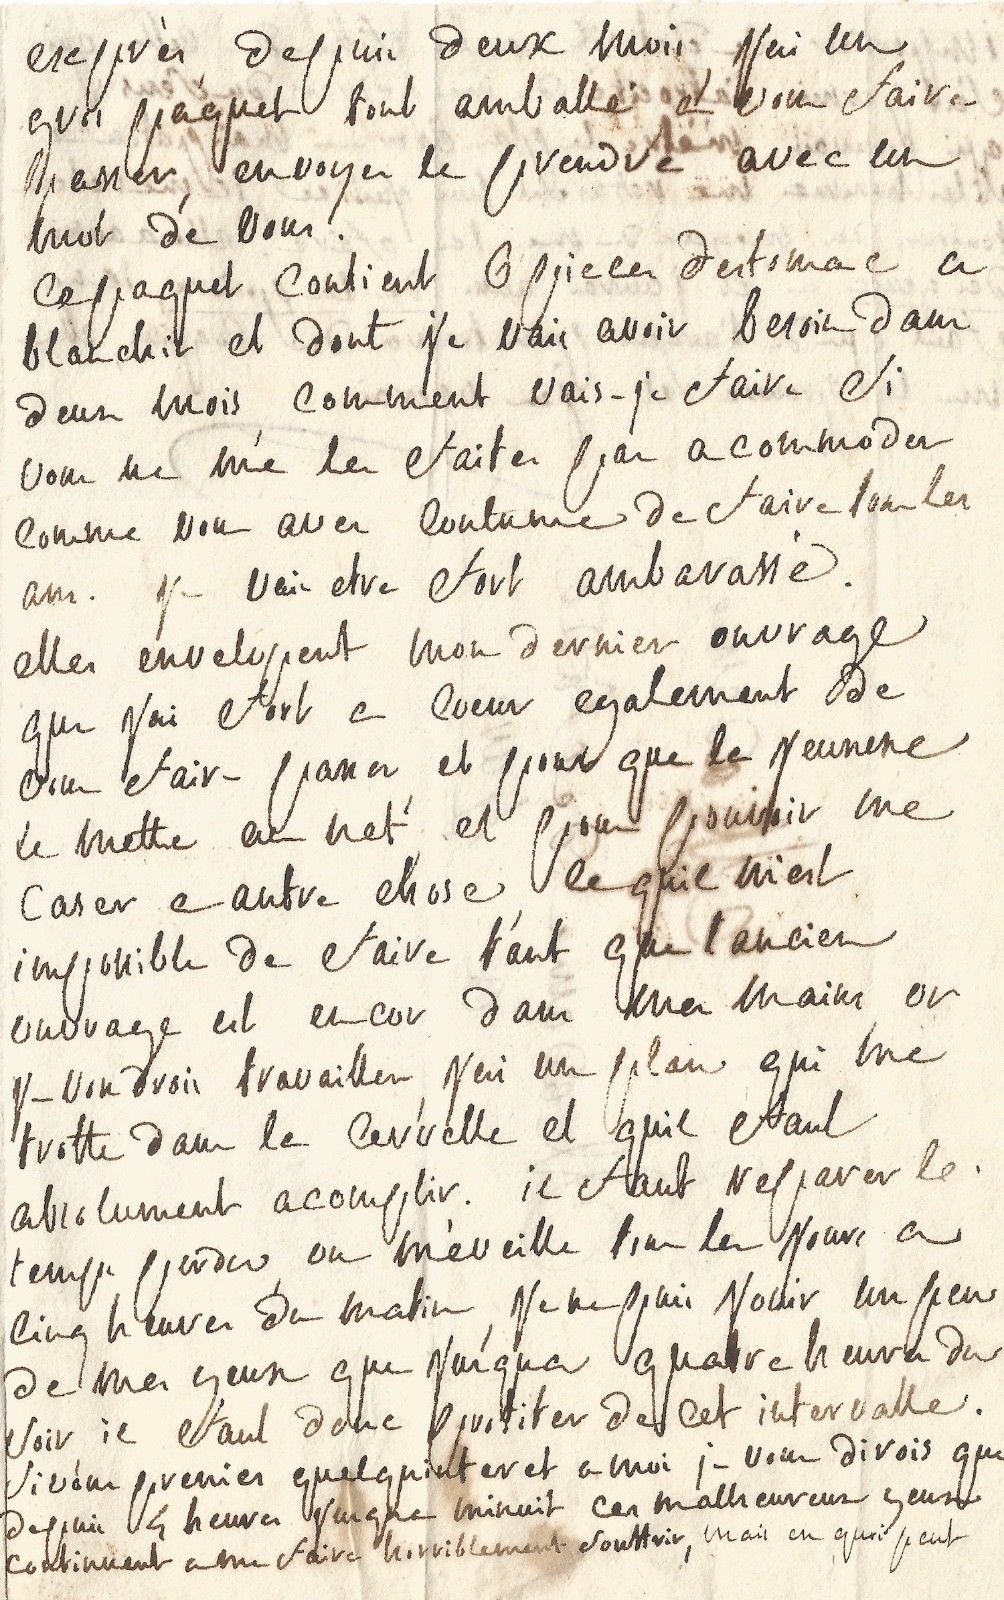 exprès, depuis deux mois j'ai un
gros paquet tout amballé a vous faire
passer, envoyer le prendre avec un
mot de vous.
Ce paquet contient 6 pieces d'estomac a
blanchir et dont je vais avoir besoin dans
deux mois comment vais-je faire si
vous ne me les faites pas acommoder
comme vous aves coutume de faire tous les
ans. je vais etre fort ambarassé.
elles envelopent mon dernier ouvrage
que j'ai fort a coeur egalement de
vous faire passer, et pour que la jeunesse
le mette au net, et pour pouvoir me
caser a autre chose, ce quil m'est
impossible de faire tant que l'ancien
ouvrage est encor dans mes mains or
je voudrois travailler, j'ai un plan qui me
trotte dans la cervelle et quil faut
absolument acomplir. il faut reparer le
temps perdu, on m'eveille tous les jours a
cinq heures du matin, je ne puis jouir un peu
de mes yeux que jusqua quatre heures du
soir il faut donc profiter de cet intervalle.
Si vous prenies quelqu'interet a moi je vous dirois que
depuis 4 heures jusqua minuit ces malheureux yeux
continuent a me faire horriblement souffrir, mais en quoi peut